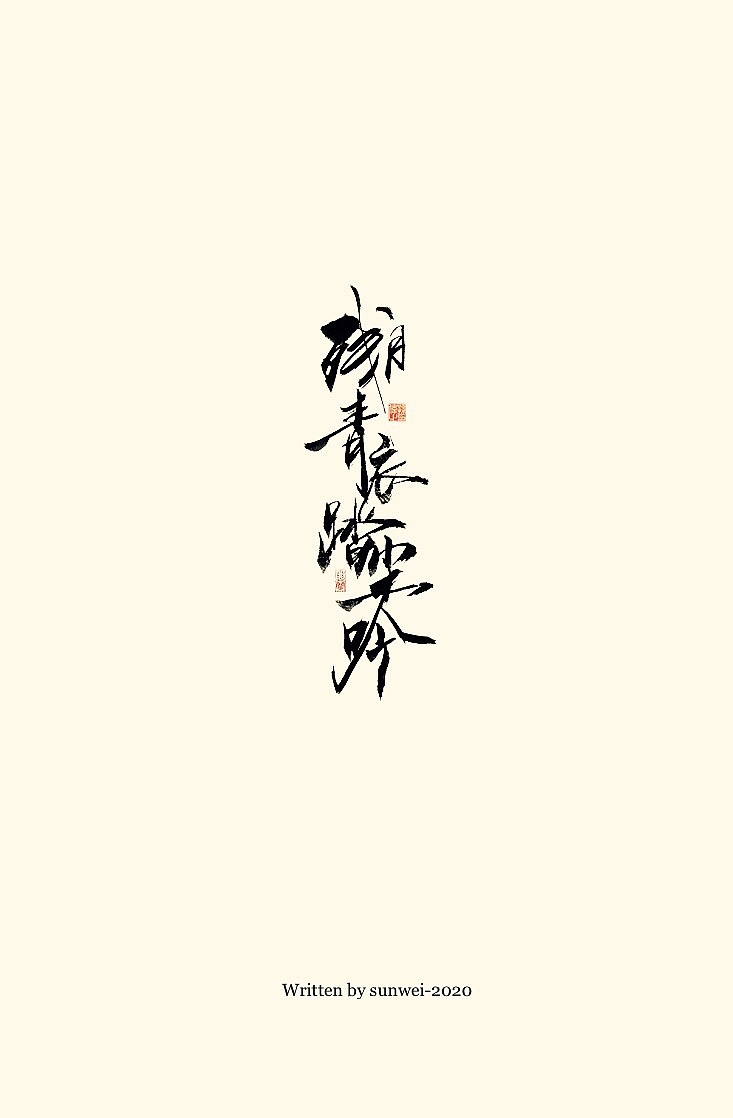 残月青衣踏尘吟
Written by sunwei-2020